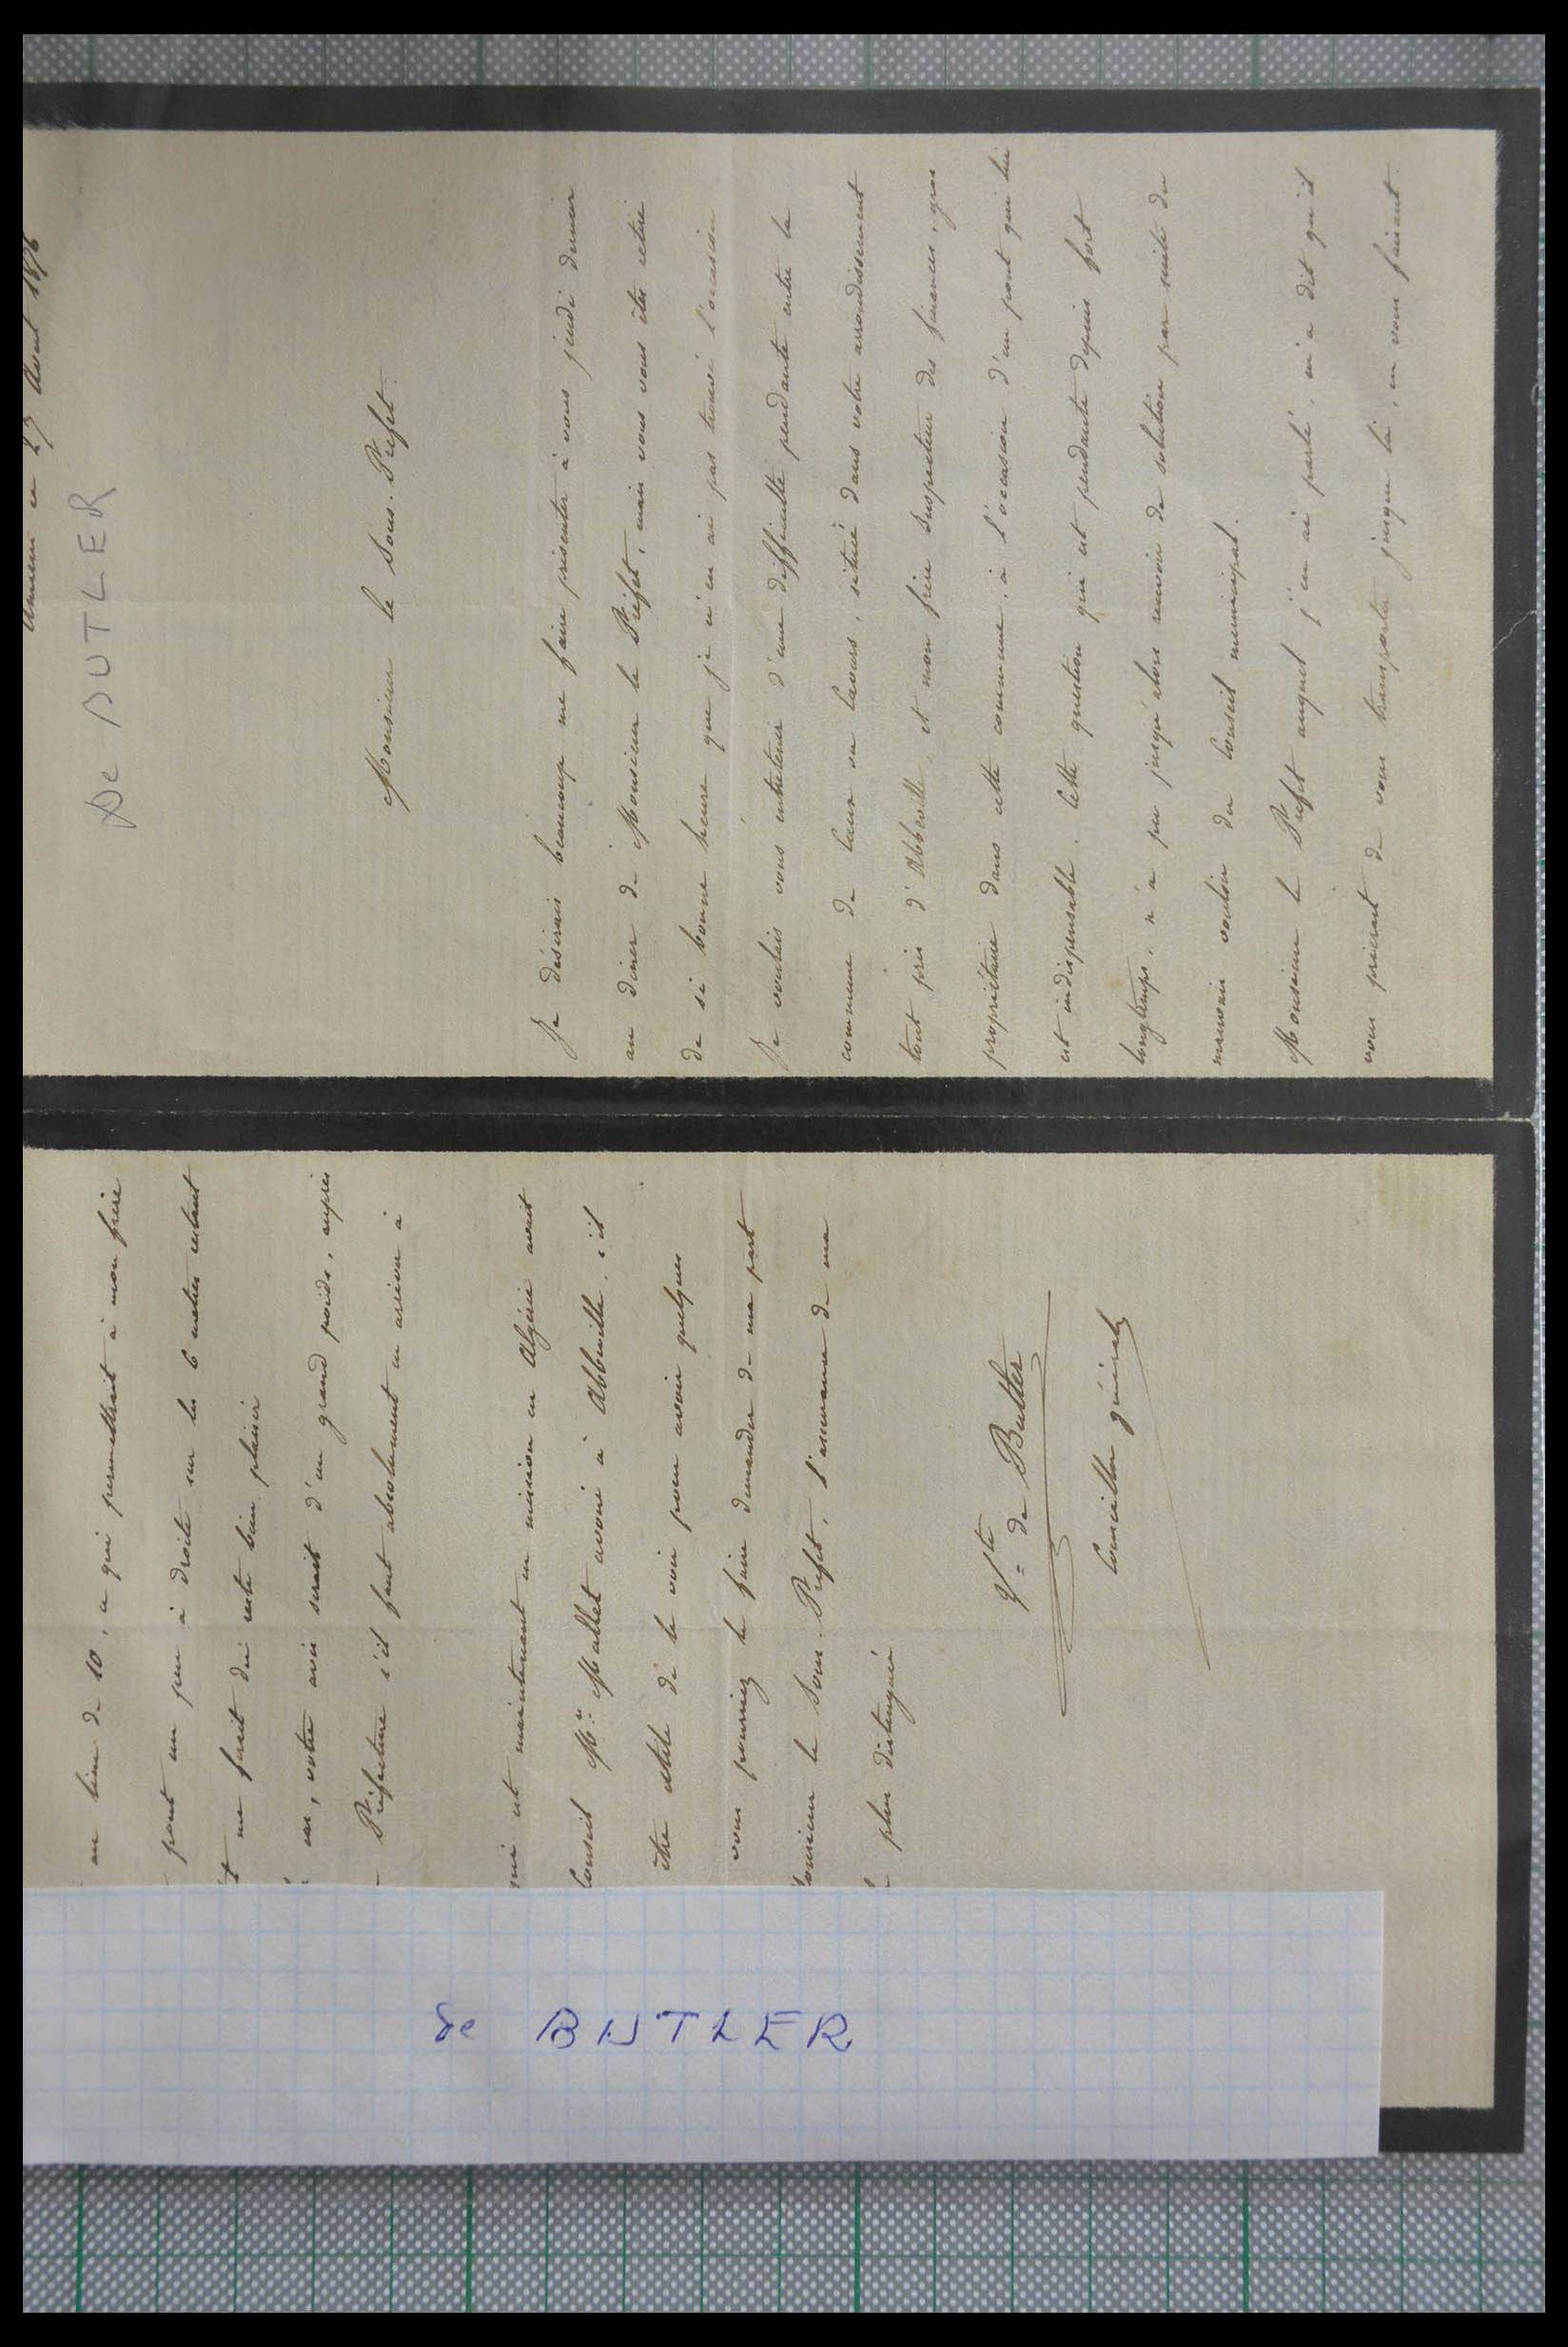 Amiens ce 29 Avril 1876
De BUTLER
Monsieur le Sous-Préfet.
Je désirais beaucoup me faire présenter à vous jeudi dernier
au diner de Monsieur le Préfet, mais vous vous êtes retiré
de si bonne heure que je n'en ai pas trouvé l'occasion
Je voulais vous entretenir d'une difficulté pendante entre la
commune de Caux ou Cavurs, située dans votre arrondissement
tout près d'Abbeville, et mon frère Inspecteur des finances, gros
propriétaire dans cette commune, à l'occasion d'un pont qui lui
est indispensable. Cette question qui est pendante depuis fort
longtemps, n'a pu jusqu'alors recevoir de solution par suite du
mauvais vouloir du Conseil municipal.
Monsieur le Préfet auquel j'en ai parlé, m'a dit qu'il
vous prierait de vous transporter jusque là, en vous faisant
au lieu de 10, ce qui permettrait à mon frère
pont un peu à droite sur les 6 mètres restant
me ferait du reste bien plaisir
votre avis serait d'un grand poids, auprès
Préfecture s'il faut absolument en arriver à
qui est maintenant en mission en Algérie avait
Conseil Mr. Mallet avoué à Abbeville, s'il
être utile de le voir pour avoir quelques
vous pourriez le faire demander de ma part
le Sous-Préfet, l'assurance de ma
plus distinguée
Vte de Butler
Conseiller général
de BUTLER